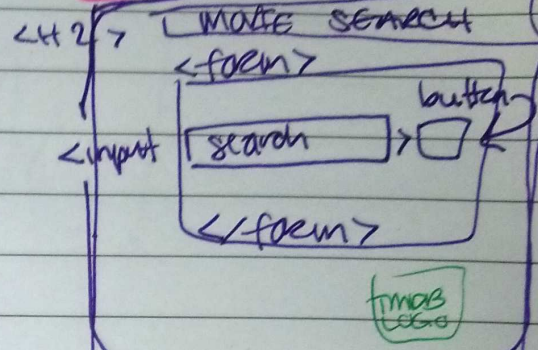 <H2> MOVIE SEARCH
<form>
button
<input search >
</form>
tmdb
LOGO